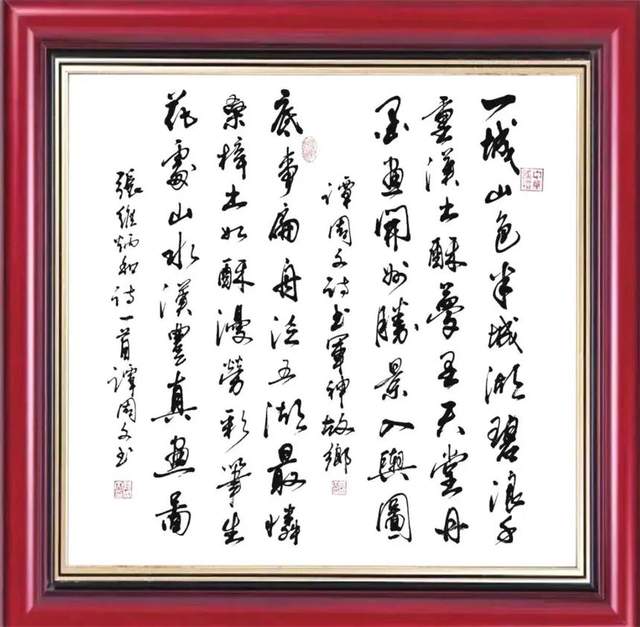 一城山色半城湖碧浪千
重漢土酥夢里天堂丹
墨畫開州勝景入輿圖
譚周文詩書軍神故鄉
底事扁舟泛五湖最憐
桑梓土如酥漫勞彩筆生
花處山水漢豐真畫圖
張維炳和詩一首譚周文書